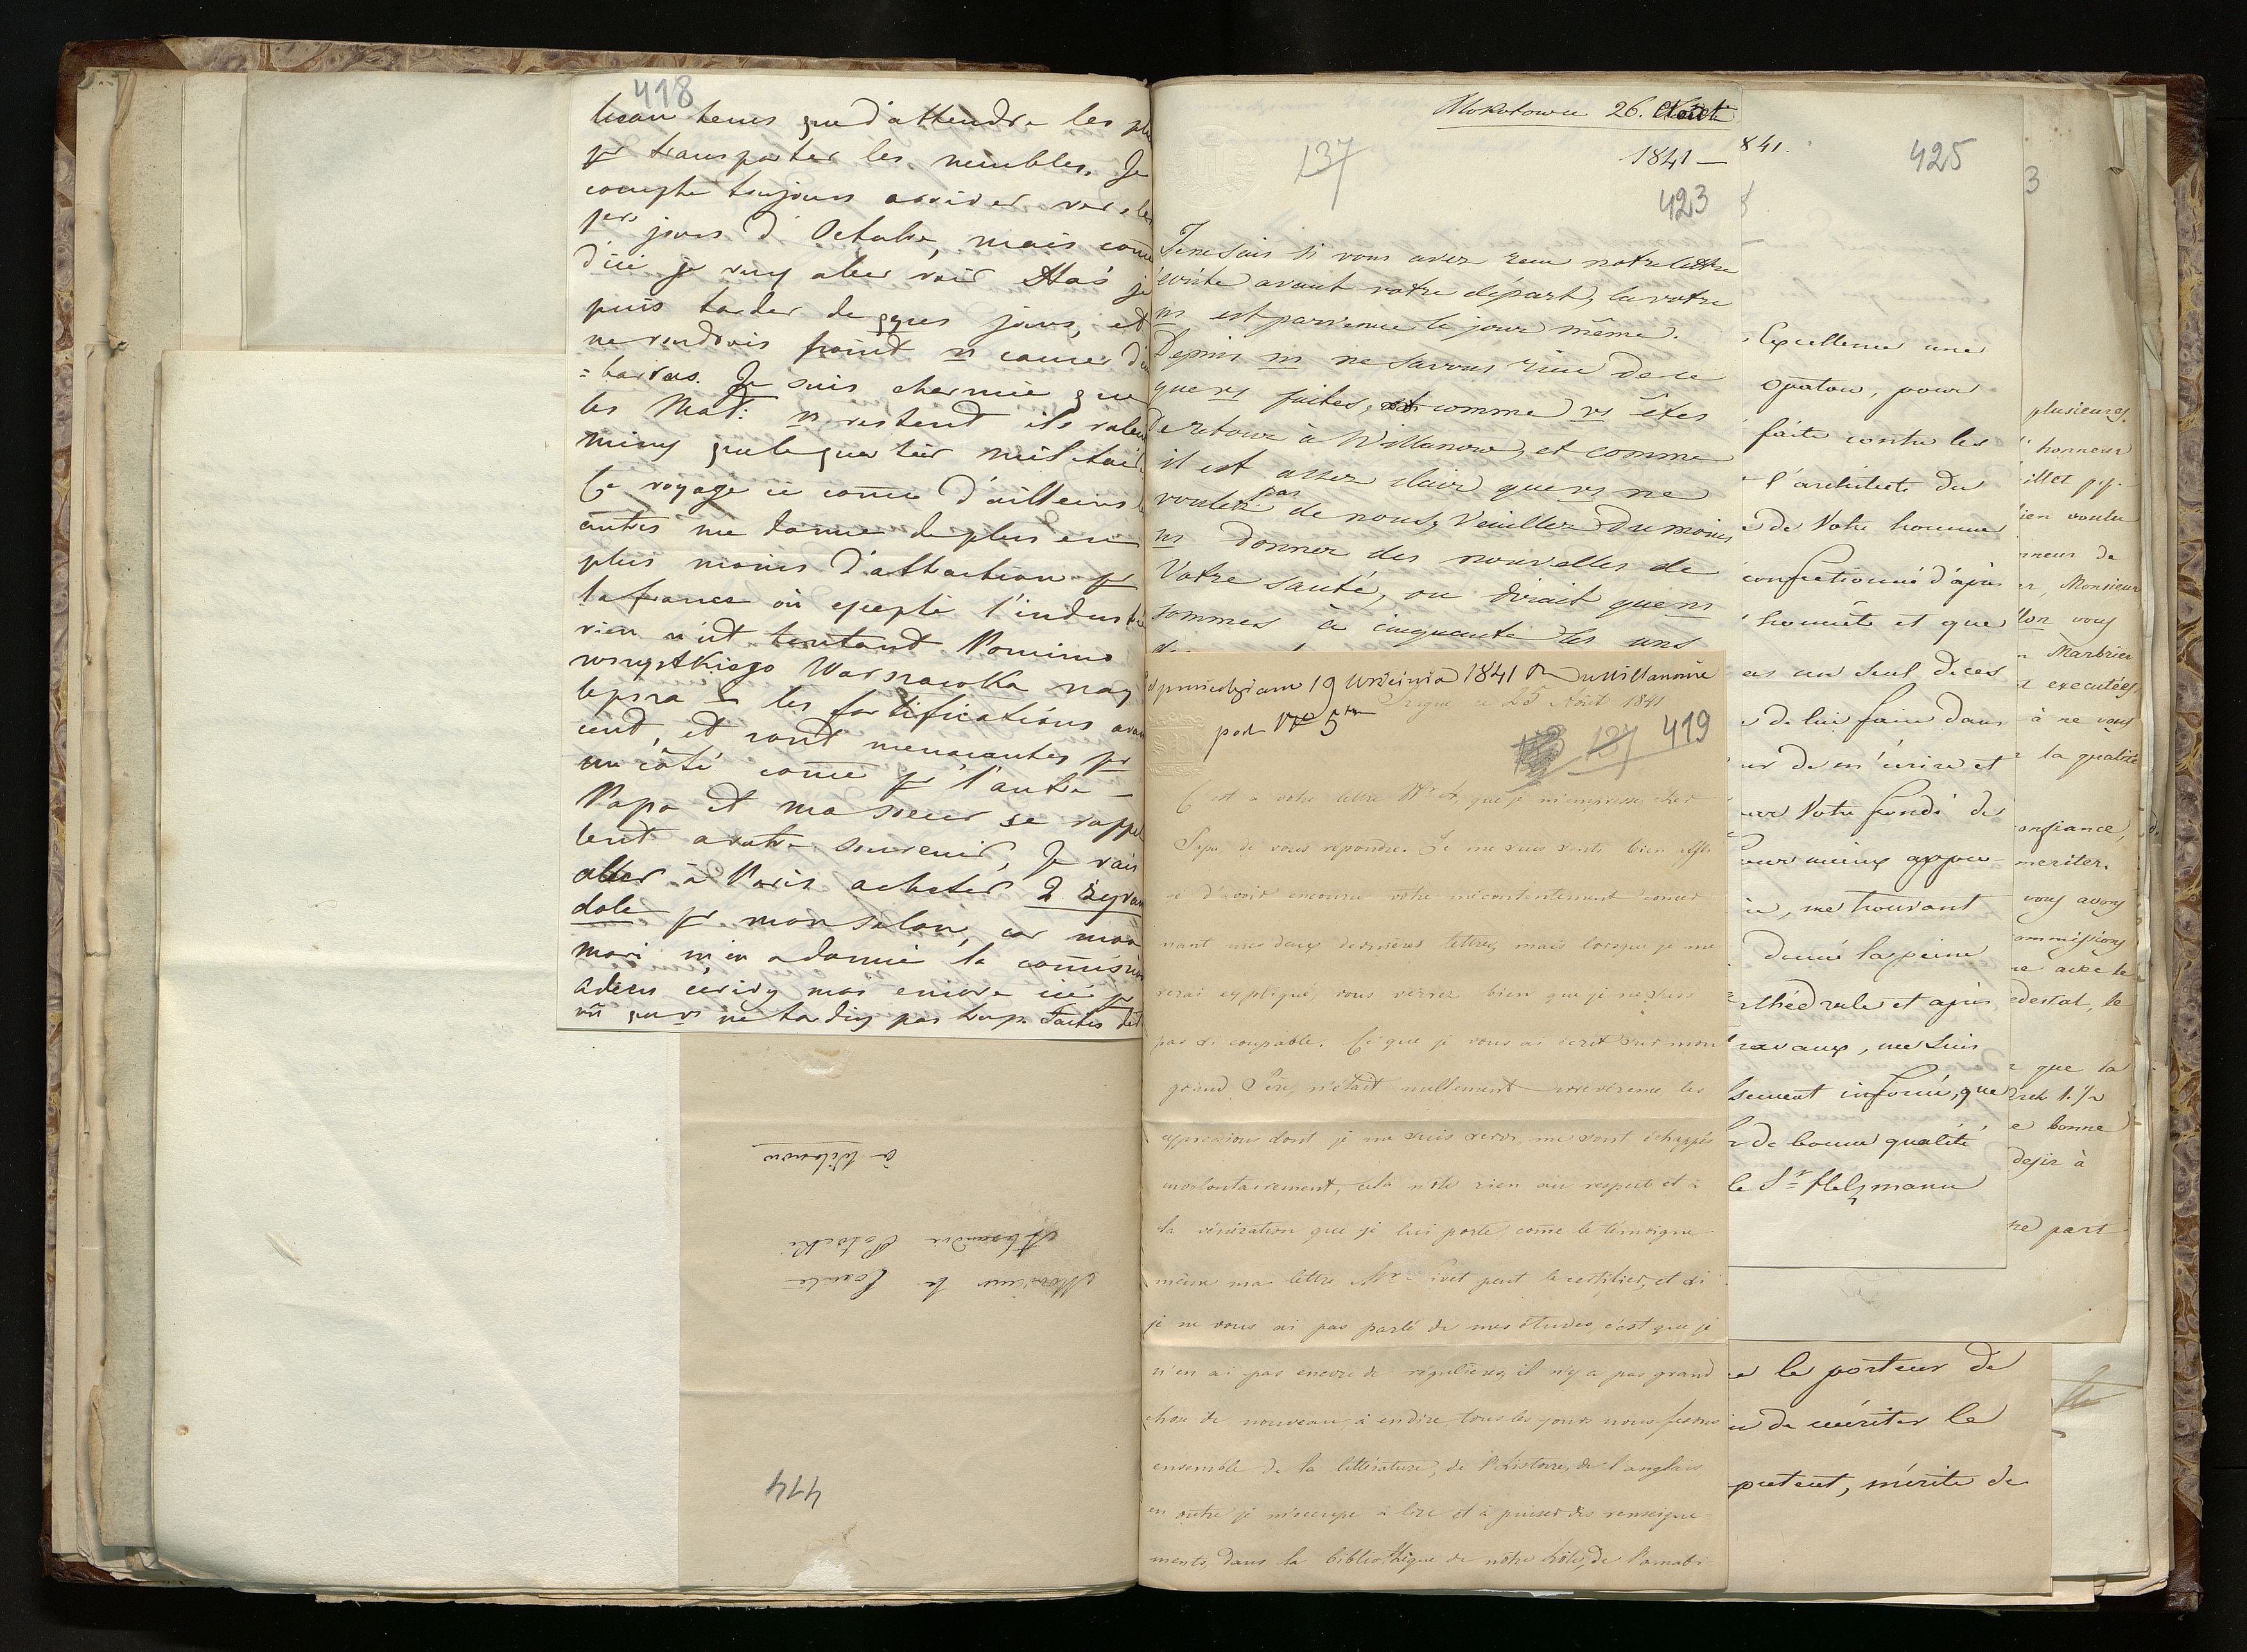 418
beau tems que d'attendre les
pr transporter les meubles. Je
compte toujours arriver vers les
jers jours d'Octobre, mais come
d'ici je veux aller voir Stas je
puis tarder de qques jours, et
ne voudrais point causer
=barras. Je suis charmée que
les Mat: restent ils valent
mieux quelque
Ce voyage ci come d'ailleurs
autres me donne de plus en
plus moins d'attraction pr
la france où excepté l'industrie
rien n'est tentant. Pomimo
wszystkiego Warszawka nay
lepsza – les fortifications avan
cent, et sont menacantes pr
un côté come pr l'autre –
Papa et ma soeur se rappel
lent a votre souvenir, Je vais
aller à Paris acheter 2 żyran
dole pr mon salon, car mon
mari m'en a donné la comission
adieu écrivez moi encore ici pr
ne tardez pas trop. Faites
à Wilanow
Alexandre Potocki
Monsieur le Comte
414
Mokotowu 26. Août
1841 —
137
423
Je ne sais si vous avez recu notre lettre
écrite avant votre départ, la votre
ns est parvenue le jour même.
Depuis ns ne savons rien de ce
que vs faites, comme vs êtes
de retour à Willanow, et comme
il est assez clair que vs ne
voulez pas de nous, Veuillez du moins
ns donner des nouvelles de
Votre santé, on dirait que ns
sommes à cinquante les uns
19 1841 Willanowie
Prague ce 25 Août 1841
pod Nro 5
137 419
C'est a votre lettre Nr 2, que je m'empresse cher
Papa de vous répondre. Je me suis senti bien
é d'avoir encouru votre mécontentement concer
nant mes deux dernières lettres, mais lorsque je me
serai expliqué, vous verrez bien que je ne suis
pas si coupable. Ce que je vous ai écrit sur mon
grand Père, n'était nullement irrévérence les
expressions dont je me suis servi me sont échappés
involontairement, cela n'ôte rien au respect et à
la vénération que je lui porte, come le témoigne
même ma lettre Mr peut le certifier, et si
je ne vous ai pas parlé de mes études, c'est que je
n'en ai pas encore de régulières, il n'y a pas grand
chose de nouveau à en dire, tous les jours nous fesons
ensemble de la littérature, de l'histoire, de l'anglais
en outre je m'occupe à lire et à puiser des renseigne-
ments, dans la bibliothèque de nôtre hôte, de l'amabi-
841.
425
Excellence une
opatow, pour
faite contre les
l'architecte du
de Votre homme
confectionné d'après
honnête et que
as un seul de ces
de lui faire dans
ur de m'écrire et
Votre fondé de
me trouvant
donné la peine
thédrale et après
ravaux, me suis
sement informé, que
de bonne qualité
le Sr Helzmann
le porteur de
de mériter le
mérite de
3
plusieurs
honneur
ien voulu
nneur de
er, Monsieur
lon vous
Marbrier
executées
à ne vous
la qualité
onfiance,
meriter.
vous avons
ommissions
avec le
edestal, le
que la
e bonne
desir à
part